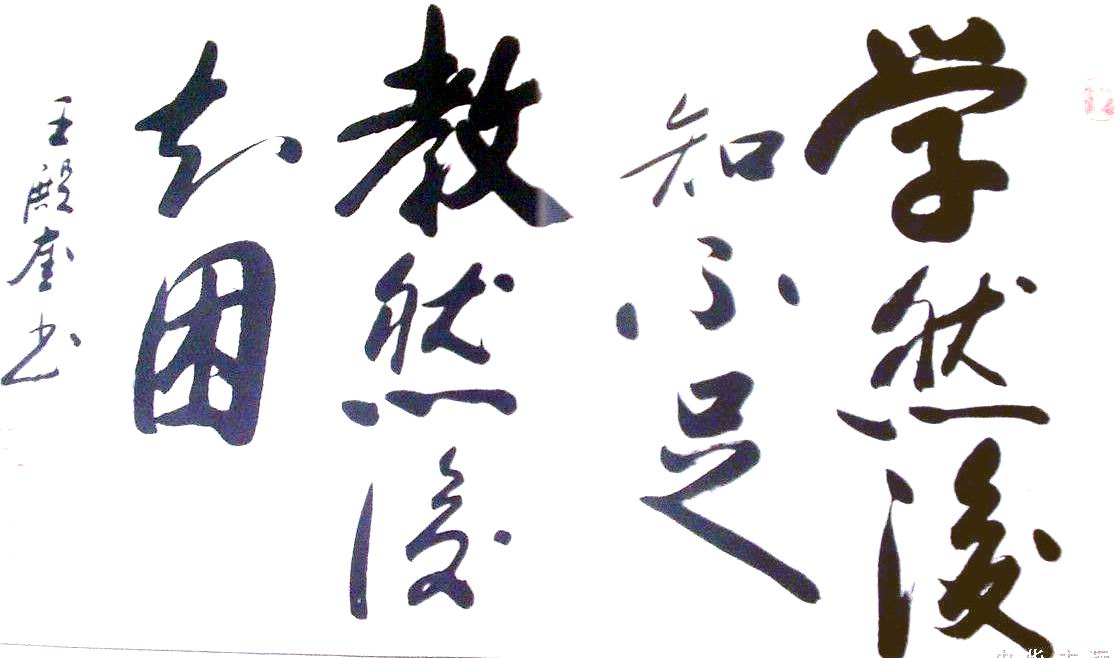 学然後
知不足
教然後
知困
王殿奎书